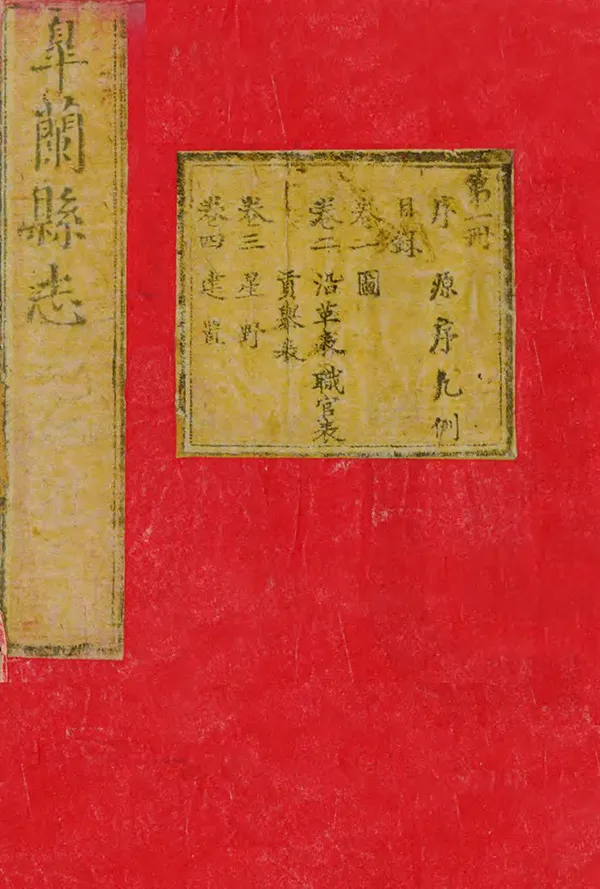 皐蘭縣志
第一冊
序 原序 凡例
目錄
卷一 圖
卷二 沿革表 職官表
貢舉表
卷三 星野
卷四 建置